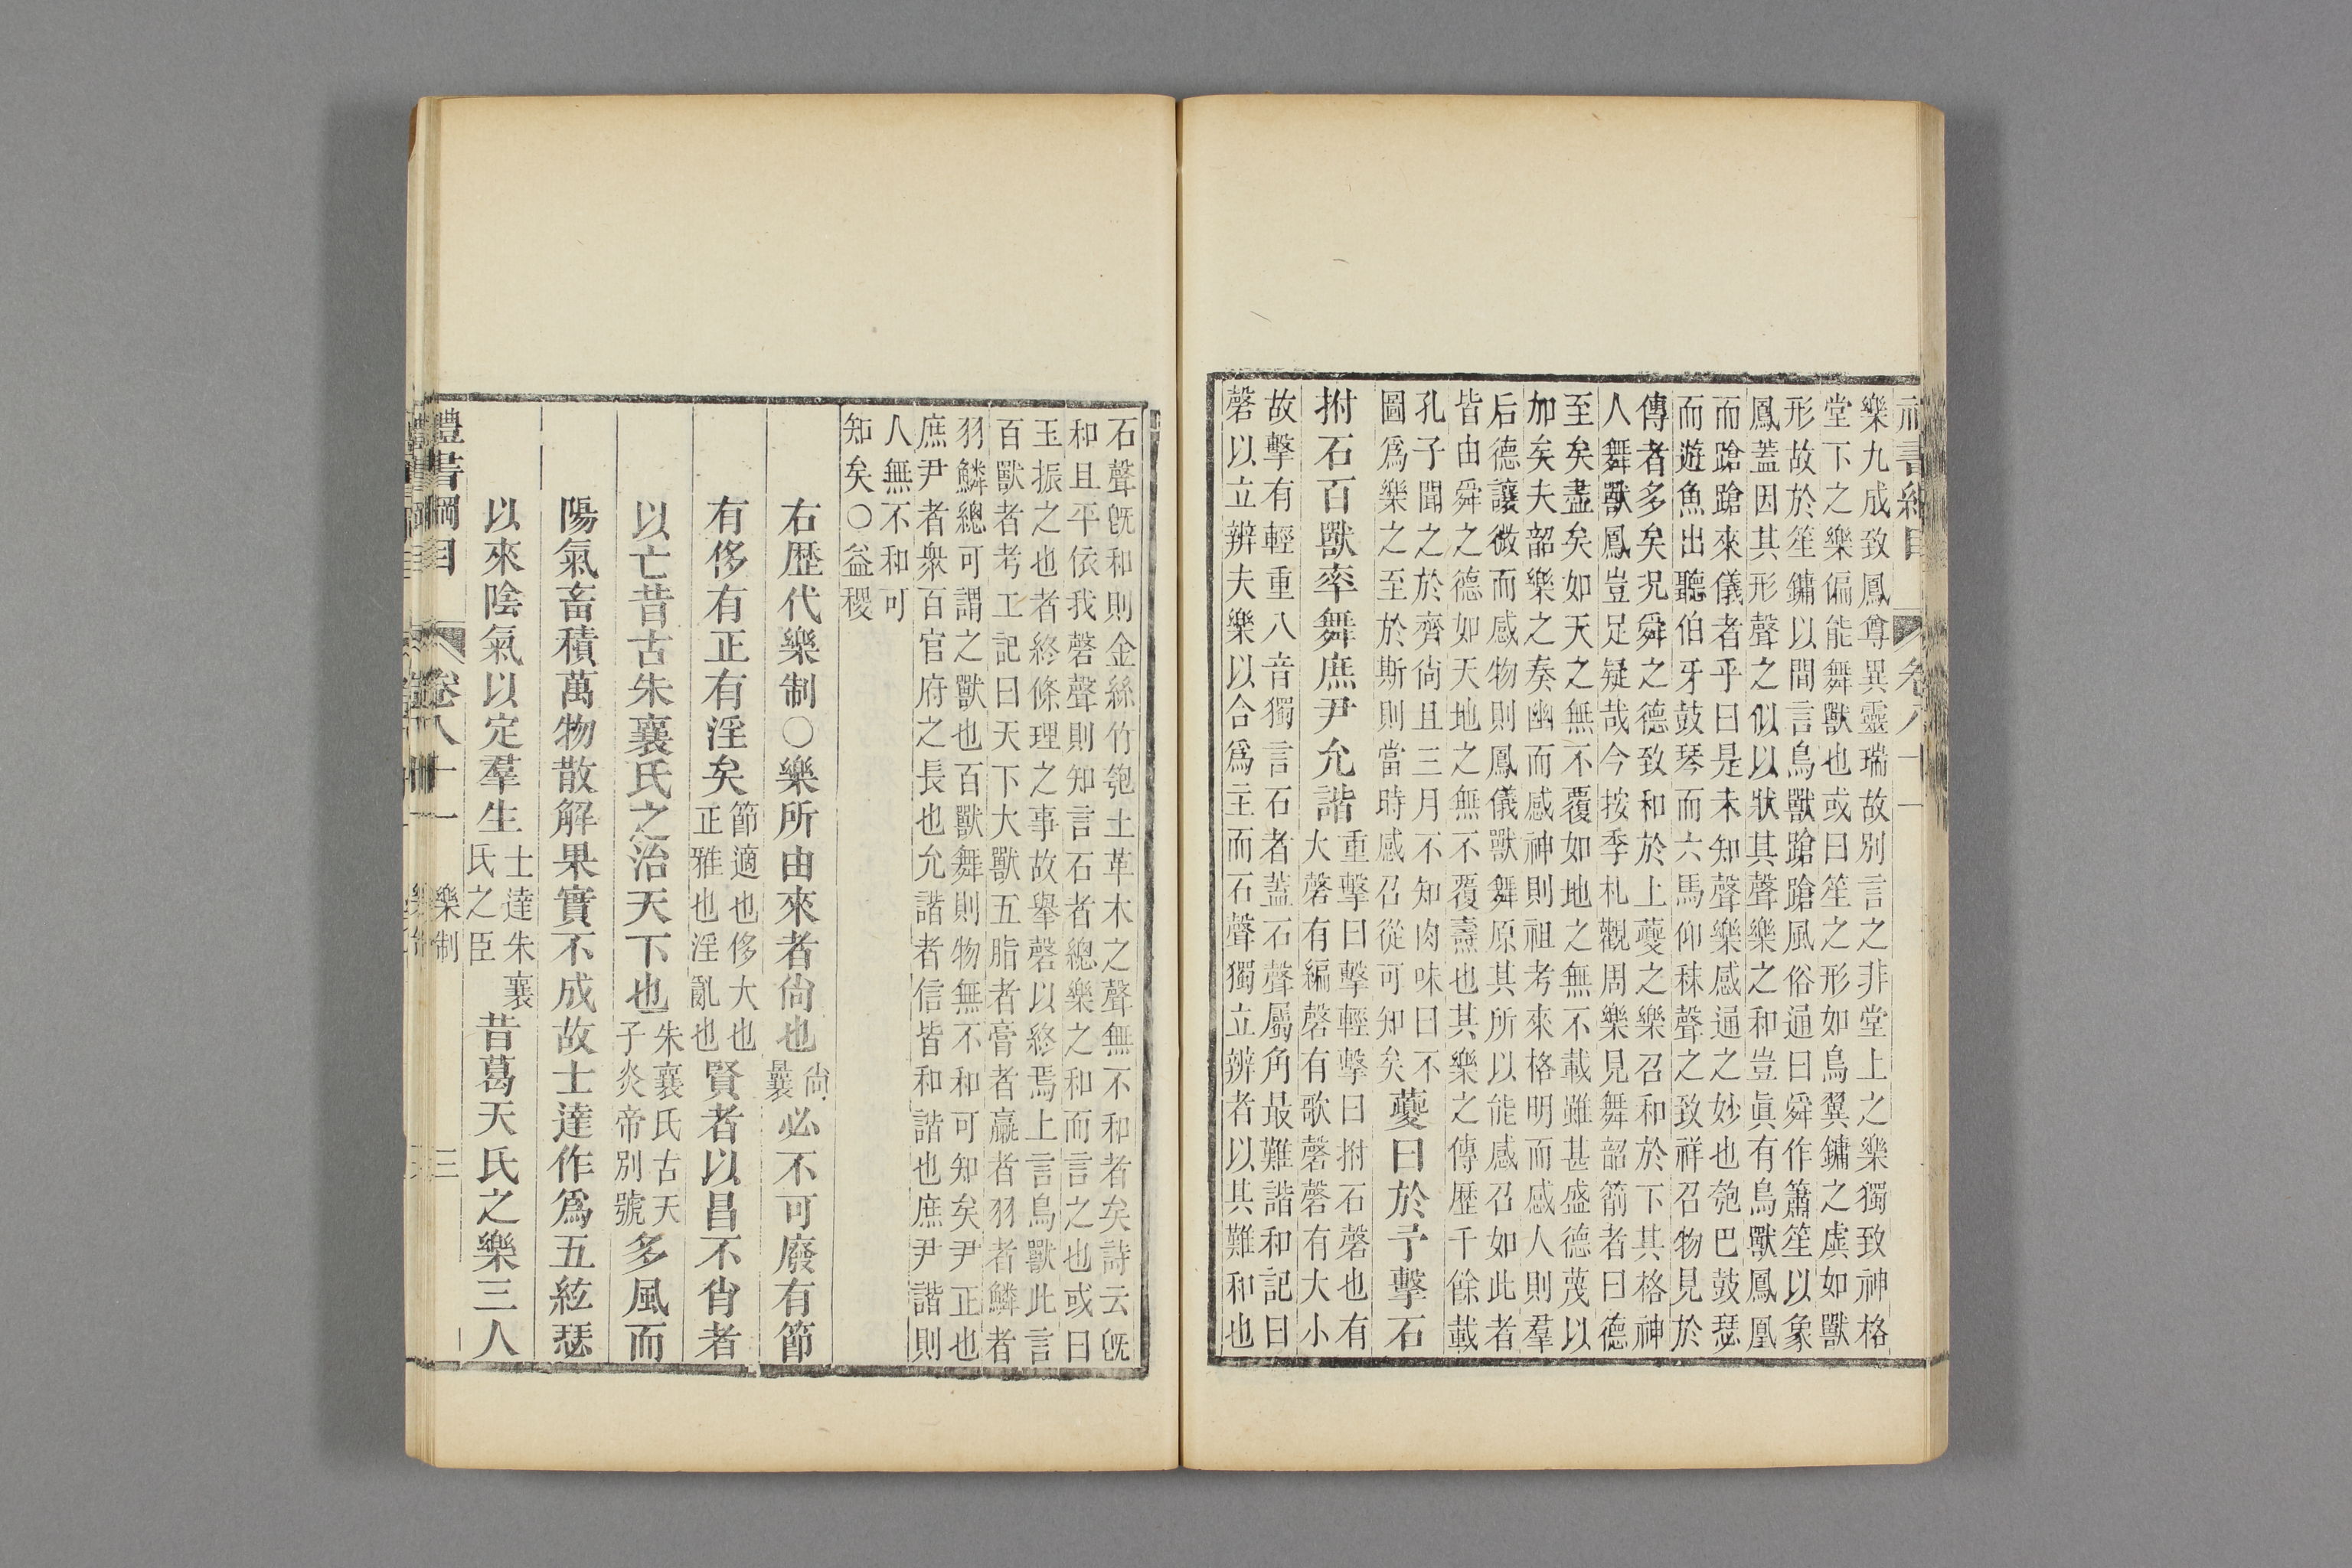 禮書綱目 卷八十一
樂九成致鳳尊異靈瑞故別言之非堂上之樂獨致神格
堂下之樂偏能舞獸也或曰笙之形如鳥翼鏞之虡如獸
形故於笙鏞以間言鳥獸蹌蹌風俗通曰舜作簫笙以象
鳳蓋因其形聲之似以狀其聲樂之和豈眞有鳥獸鳳凰
而蹌蹌來儀者乎曰是未知聲樂感通之妙也匏巴鼓瑟
而遊魚出聽伯牙鼓琴而六馬仰秣聲之致祥召物見於
傳者多矣況舜之德致和於上夔之樂召和於下其格神
人舞獸鳳豈足疑哉今按季札觀周樂見舞韶箾者曰德
至矣盡矣如天之無不覆如地之無不載雖甚盛德蔑以
加矣夫韶樂之奏幽而感神則祖考來格明而感人則羣
后德讓微而感物則鳳儀獸舞原其所以能感召如此者
皆由舜之德如天地之無不覆燾也其樂之傳歷千餘載
孔子聞之於齊尙且三月不知肉味曰不
圖爲樂之至於斯則當時感召從可知矣
夔曰於予擊石
拊石百獸率舞庶尹允諧
重擊曰擊輕擊曰拊石磬也有
大磬有編磬有歌磬磬有大小
故擊有輕重八音獨言石者蓋石聲屬角最難諧和記曰
磬以立辨夫樂以合爲主而石聲獨立辨者以其難和也
石聲旣和則金絲竹匏土革木之聲無不和者矣詩云旣
和且平依我磬聲則知言石者總樂之和而言之也或曰
玉振之也者終條理之事故舉磬以終焉上言鳥獸此言
百獸者考工記曰天下大獸五脂者膏者臝者羽者鱗者
羽鱗總可謂之獸也百獸舞則物無不和可知矣尹正也
庶尹者衆百官府之長也允諧者信皆和諧也庶尹諧則
人無不和可
知矣○益稷
右歷代樂制○樂所由來者尙也
尙
曩
必不可廢有節
有侈有正有淫矣
節適也侈大也
正雅也淫亂也
賢者以昌不肖者
以亡昔古朱襄氏之治天下也
朱襄氏古天
子炎帝別號
多風而
陽氣畜積萬物散解果實不成故士達作爲五絃瑟
以來陰氣以定羣生
士達朱襄
氏之臣
昔葛天氏之樂三人
禮書綱目 卷八十一 樂制 三